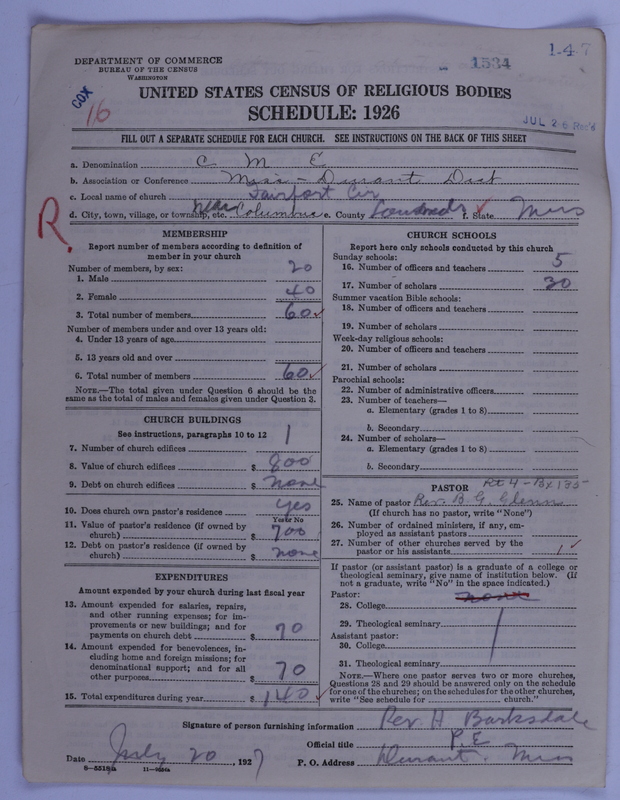 1-47
1534
DEPARTMENT OF COMMERCE
BUREAU OF THE CENSUS
WASHINGTON
COX
16
UNITED STATES CENSUS OF RELIGIOUS BODIES
SCHEDULE: 1926
JUL 26 Rec'd
FILL OUT A SEPARATE SCHEDULE FOR EACH CHURCH. SEE INSTRUCTIONS ON THE BACK OF THIS SHEET
a. Denomination C M E
b. Association or Conference Miss - Durant Dist
c. Local name of church Fairport Cir
d. City, town, village, or township, etc. Near Columbus e. County Lowndes f. State Miss
R.
MEMBERSHIP
Report number of members according to definition of member in your church
Number of members, by sex:
1. Male 20
2. Female 40
3. Total number of members 60
Number of members under and over 13 years old:
4. Under 13 years of age
5. 13 years old and over
6. Total number of members 60
NOTE.—The total given under Question 6 should be the same as the total of males and females given under Question 3.
CHURCH BUILDINGS
See instructions, paragraphs 10 to 12
7. Number of church edifices 1
8. Value of church edifices $ 800
9. Debt on church edifices $ none
10. Does church own pastor's residence yes
Yes or No
11. Value of pastor's residence (if owned by church) $ 700
12. Debt on pastor's residence (if owned by church) $ none
EXPENDITURES
Amount expended by your church during last fiscal year
13. Amount expended for salaries, repairs, and other running expenses; for improvements or new buildings; and for payments on church debt $ 70
14. Amount expended for benevolences, including home and foreign missions; for denominational support; and for all other purposes $ 70
15. Total expenditures during year $ 140
CHURCH SCHOOLS
Report here only schools conducted by this church
Sunday schools:
16. Number of officers and teachers 5
17. Number of scholars 30
Summer vacation Bible schools:
18. Number of officers and teachers
19. Number of scholars
Week-day religious schools:
20. Number of officers and teachers
21. Number of scholars
Parochial schools:
22. Number of administrative officers
23. Number of teachers—
a. Elementary (grades 1 to 8)
b. Secondary
24. Number of scholars—
a. Elementary (grades 1 to 8)
b. Secondary
PASTOR Rt 4 - Bx 135
25. Name of pastor Rev. B. G. Glenn
(If church has no pastor, write "None")
26. Number of ordained ministers, if any, employed as assistant pastors
27. Number of other churches served by the pastor or his assistants 1
If pastor (or assistant pastor) is a graduate of a college or theological seminary, give name of institution below. (If not a graduate, write "No" in the space indicated.)
Pastor: none
28. College
29. Theological seminary
Assistant pastor:
30. College
31. Theological seminary
NOTE.—Where one pastor serves two or more churches, Questions 28 and 29 should be answered only on the schedule for one of the churches; on the schedules for the other churches, write "See schedule for church."
Signature of person furnishing information Rev. H Barksdale
Official title P. E
Date July 20, 1927 P. O. Address Durant. Miss